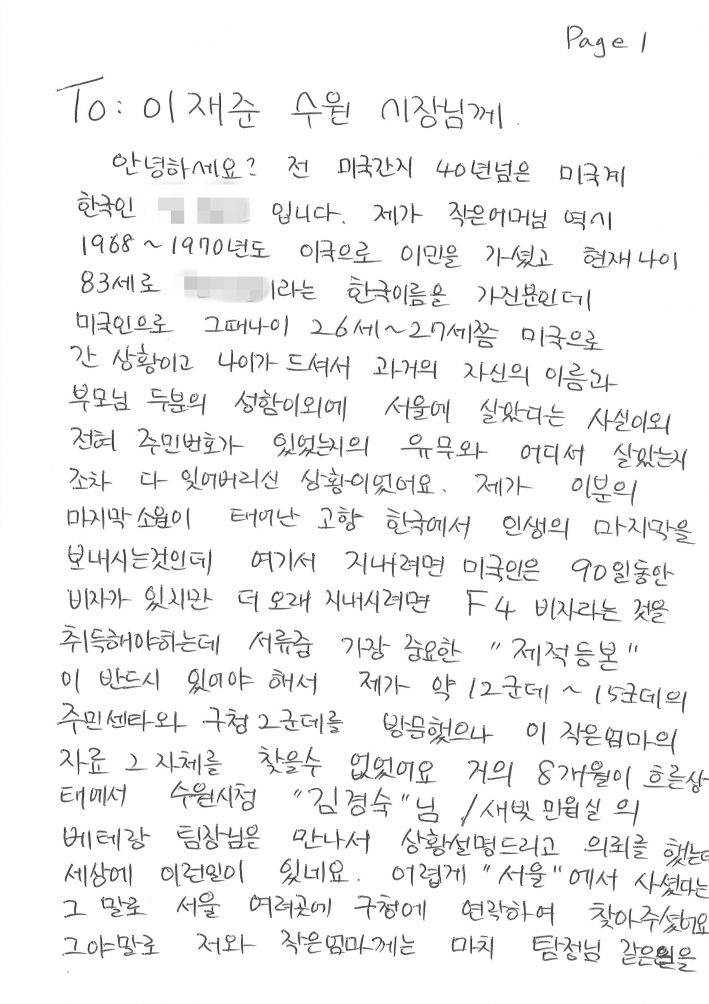 Page 1
To: 이재준 수원 시장님께.
안녕하세요? 전 미국간지 40년넘은 미국계
한국인 입니다. 제가 작은어머님 역시
1968~1970년도 미국으로 이민을 가셨고 현재나이
83세로 이라는 한국이름을 가진분인데
미국인으로 그때나이 26세~27세쯤 미국으로
간 상황이고 나이가 드셔서 과거의 자신의 이름과
부모님 두분의 성함이외에 서울에 살았다는 사실이외
전혀 주민번호가 있었는지의 유무와 어디서 살았는지
조차 다 잊어버리신 상황이었어요. 제가 이분의
마지막소원이 태어난 고향 한국에서 인생의 마지막을
보내시는것인데 여기서 지내려면 미국인은 90일동안
비자가 있지만 더 오래 지내시려면 F4 비자라는 것을
취득해야하는데 서류중 가장 중요한 "제적등본"
이 반드시 있어야 해서 제가 약 12군데~15군데의
주민센타와 구청2군데를 방문했으나 이 작은엄마의
자료 그 자체를 찾을수 없었어요 거의 8개월이 흐른상
태에서 수원시청 "김경숙"님 /새빛 민원실 의
베테랑 팀장님은 만나서 상황설명드리고 의뢰를 했는데
세상에 이런일이 있네요. 어렵게 "서울"에서 사셨다는
그 말로 서울 여러곳에 구청에 연락하여 찾아주셨어요
그야말로 저와 작은엄마께는 마치 탐정님 같은 을